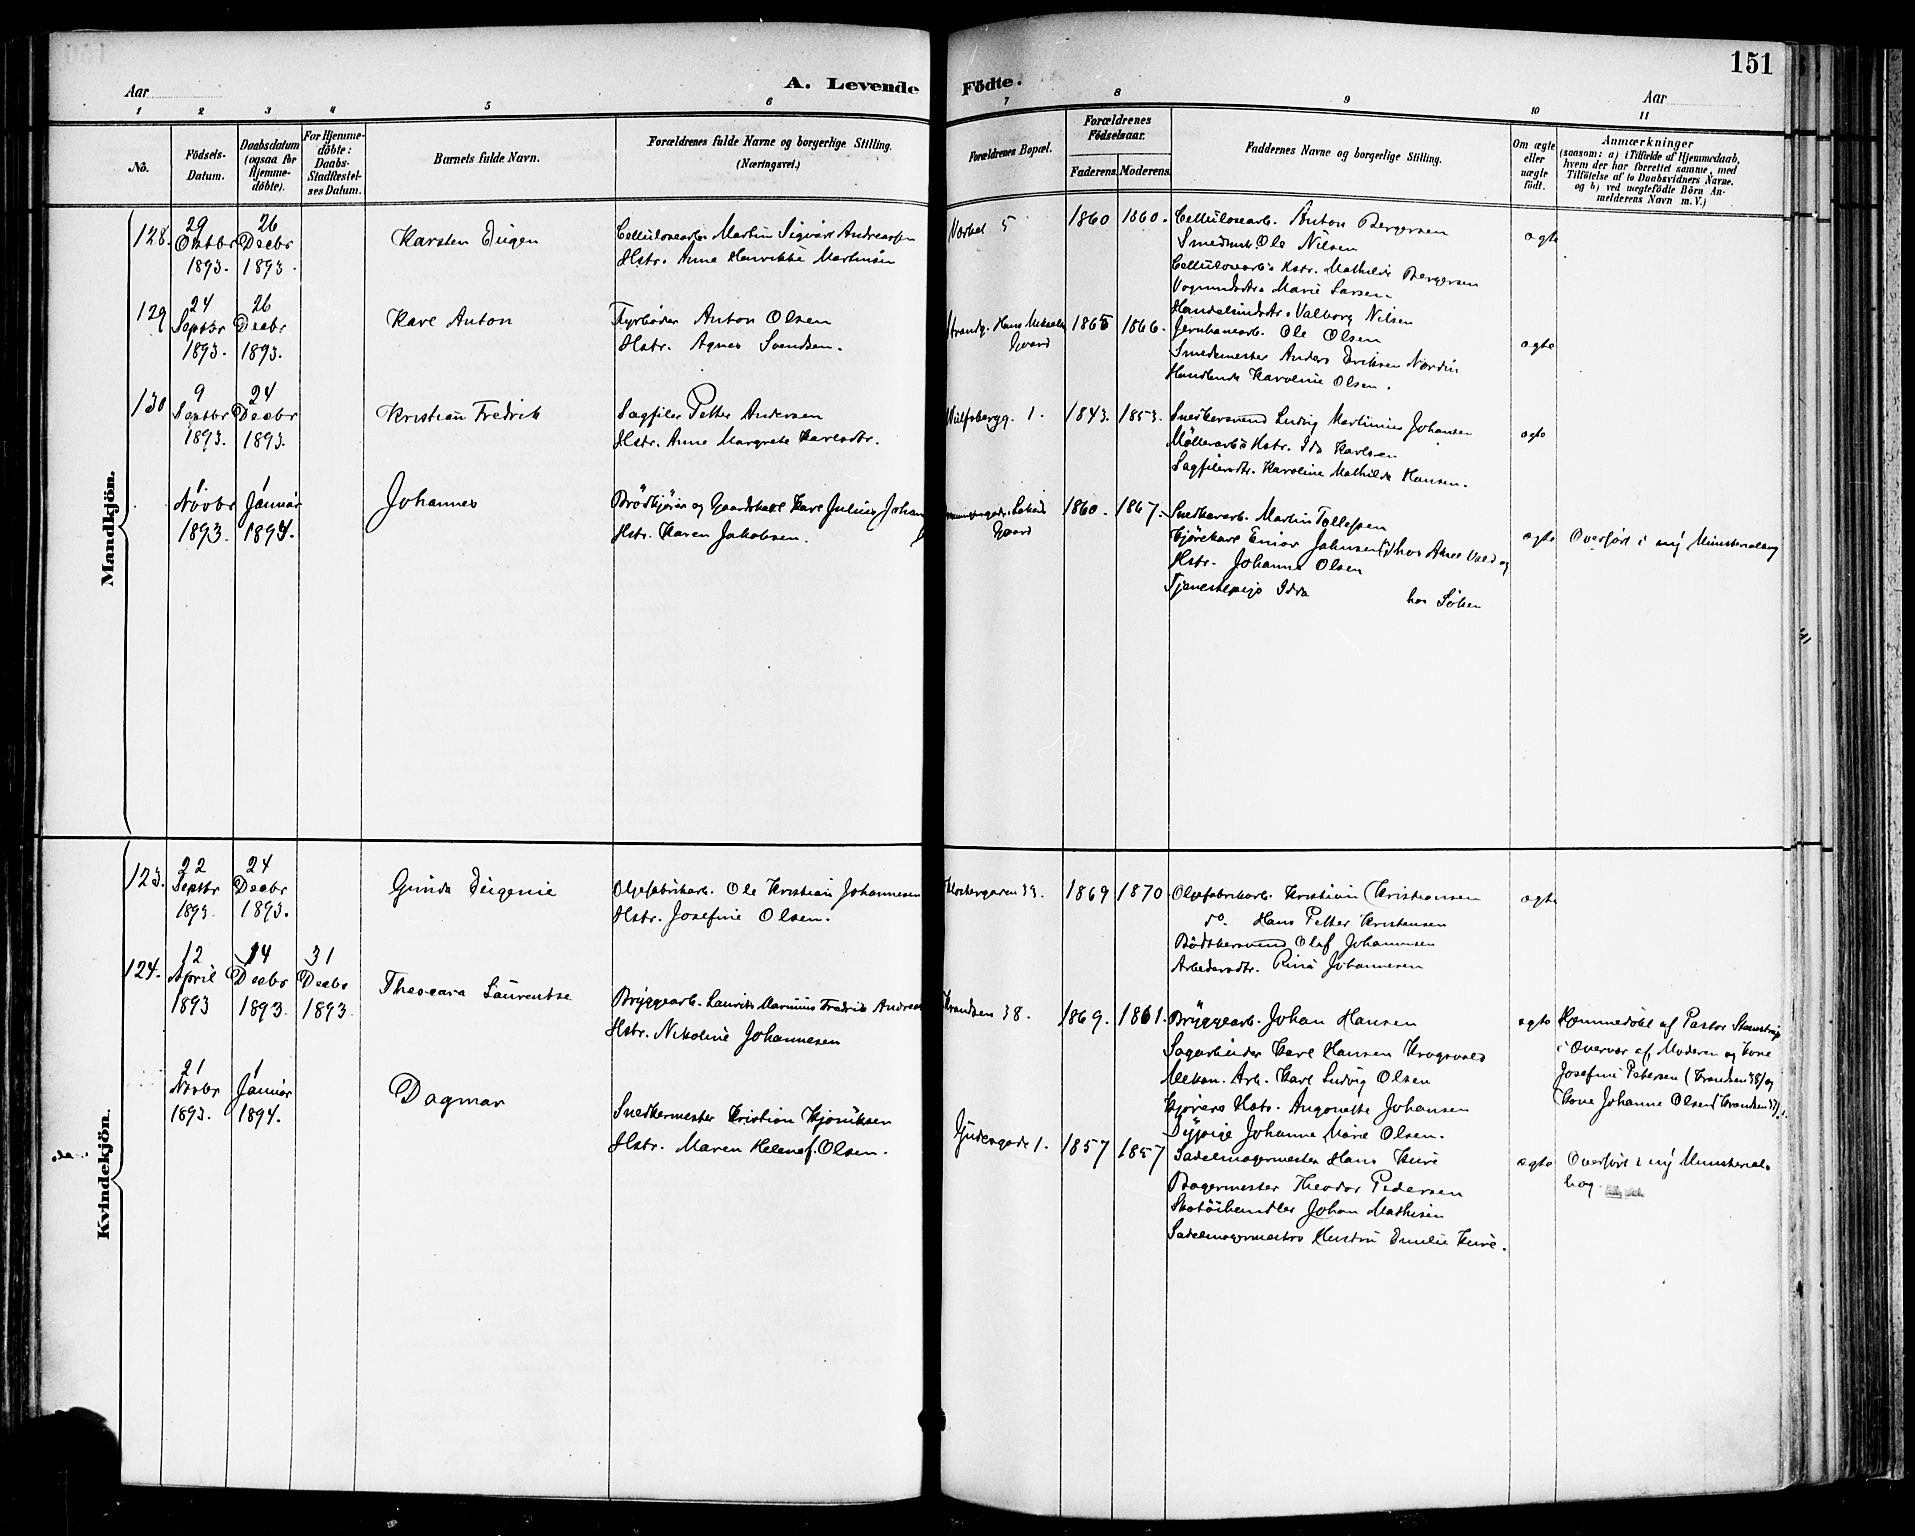 151
Aar
A. Levende Födte.
Aar
1 2 3 4 5 6 7 8 9 10 11
No.
Födsels-Datum.
Daabsdatum (ogsaa for Hjemme-döbte).
For Hjemme-döbte: Daabs-Stadfæstel-ses Datum.
Barnets fulde Navn.
Forældrenes fulde Navne og borgerlige Stilling.
(Næringsvei.)
Forældrenes Bopæl.
Forældrenes Födselsaar.
Faderens. Moderens.
Faddernes Navne og borgerlige Stilling.
Om ægte eller uægte födt.
Anmærkninger
(saasom: a) i Tilfælde af Hjemmedaab,
hvem der har forrettet samme, med
Tilföielse af to Daabsvidners Navne.
og b) ved uegtefödte Börn An-
melderens Navn m. V.)
Mandkjön.
128. 29 Oktbr 1893. 26 Decbr 1893.
Karsten Eugen
Cellulosearb. Martin Sigvart Andreassen
Hstr. Anne Henrikke Martinsen
5 1860 1860.
Cellulosearb. Anton Bergersen
Smedmt. Ole Nilsen
Cellulosearb's Hstr. Mathilde Bergersen
Vognmdsdtr. Marie Larsen
Valborg Nilsen
ægte
129 24 Septbr 1893. 26 Decbr 1893.
Karl Anton
Fyrböder Anton Olsen
Hstr. Agnes Svendsen.
Strandg. Hans Gaard
1865 1866.
Jernbanearb. Ole Olsen
Smedemester Anders Eriksen Nordin
Handlende Karoline Olsen.
ægte
130 9 Septbr 1893. 24 Decbr 1893.
Kristian Fredrik
Sagfiler Petter Andersen
Hstr. Anne Margrete Karlsdtr.
1. 1843. 1853.
Snedkersvend Ludvig Martinius Johansen
Möllerarb's Hstr. Ida Karlsen
Sagfilersdtr. Karoline Mathilde Hansen.
ægte
1 Novbr 1893. 1 Januar 1894.
Johannes
Brödkjörer og Gaardskarl Karl Julius Johan
Hstr. Karen Jakobsen.
Gaard
1860. 1867.
Snedkerarb. Martin Tollefsen
Kjörekarl Einar Johnsen hos
Hstr. Johanne Olsen
Tjenestepige Ida hos
ægte
Overfört i ny Ministerialbog
Kvindekjön.
123. 22 Septbr 1893. 24 Decbr 1893.
Gunda Eugenie
Oljefabrikarb. Ole Kristian Johannesen
Hstr. Josefine Olsen.
1869 1870
Oljefabrikarb. Kristian Kristiansen
do. Hans Petter Kristensen
Bödkersvend Olaf Johannesen
Arbeidersdtr. Rina Johannesen
ægte
124. 12 April 1893 14 Decbr 1893. 31 Decbr 1893.
Theodara Laurentse
Bryggearb. Laurits Marinius Fredrik
Hstr. Nikoline Johannesen
38. 1869. 1861.
Bryggearb. Johan Hansen
Sagarbeider Karl Hansen
Mekan. Arb. Karl Ludvig Olsen
Kjörers Hstr. Johansen
Pige Johanne Marie Olsen.
ægte
Hjemmedöbt af Pastor
i Overvær af Moderen og Kone
Josefine Petersen og
Kone Johanne Olsen
21 Novbr 1893. 1 Januar 1894.
Dagmar
Snedkermester Kristian
Hstr. Maren Helene Olsen.
1. 1857 1857
Sadelmagermester Hans Kure
Bagermester Theodor Pedersen
Skotöihandler Johan Mathisen
Sadelmagermesters Hustru Emilie Kure.
ægte
Overfört i ny Ministerial-
bog.